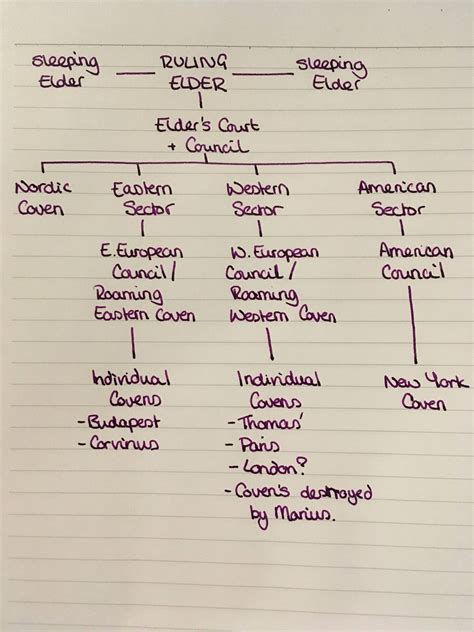 sleeping Elder
RULING ELDER
sleeping Elder
Elder's Court
+ Council
Nordic
Coven
Eastern
Sector
Western
Sector
American
Sector
E.European
Council/
Roaming
Eastern Coven
W.European
Council/
Roaming
Western Coven
American
Council
Individual
Covens
-Budapest
-Corvinus
Individual
Covens
-Thomas'
-Paris
-London?
-Coven's destroyed
by Marius.
New York
Coven